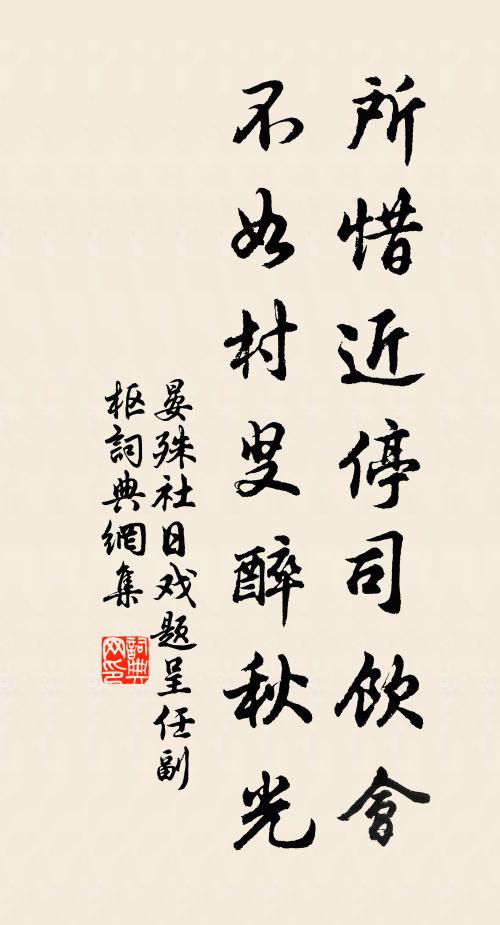 所惜近停司飲會
不如村叟醉秋光
晏殊社日戏题呈任副
枢詞典網集
詞典
网印